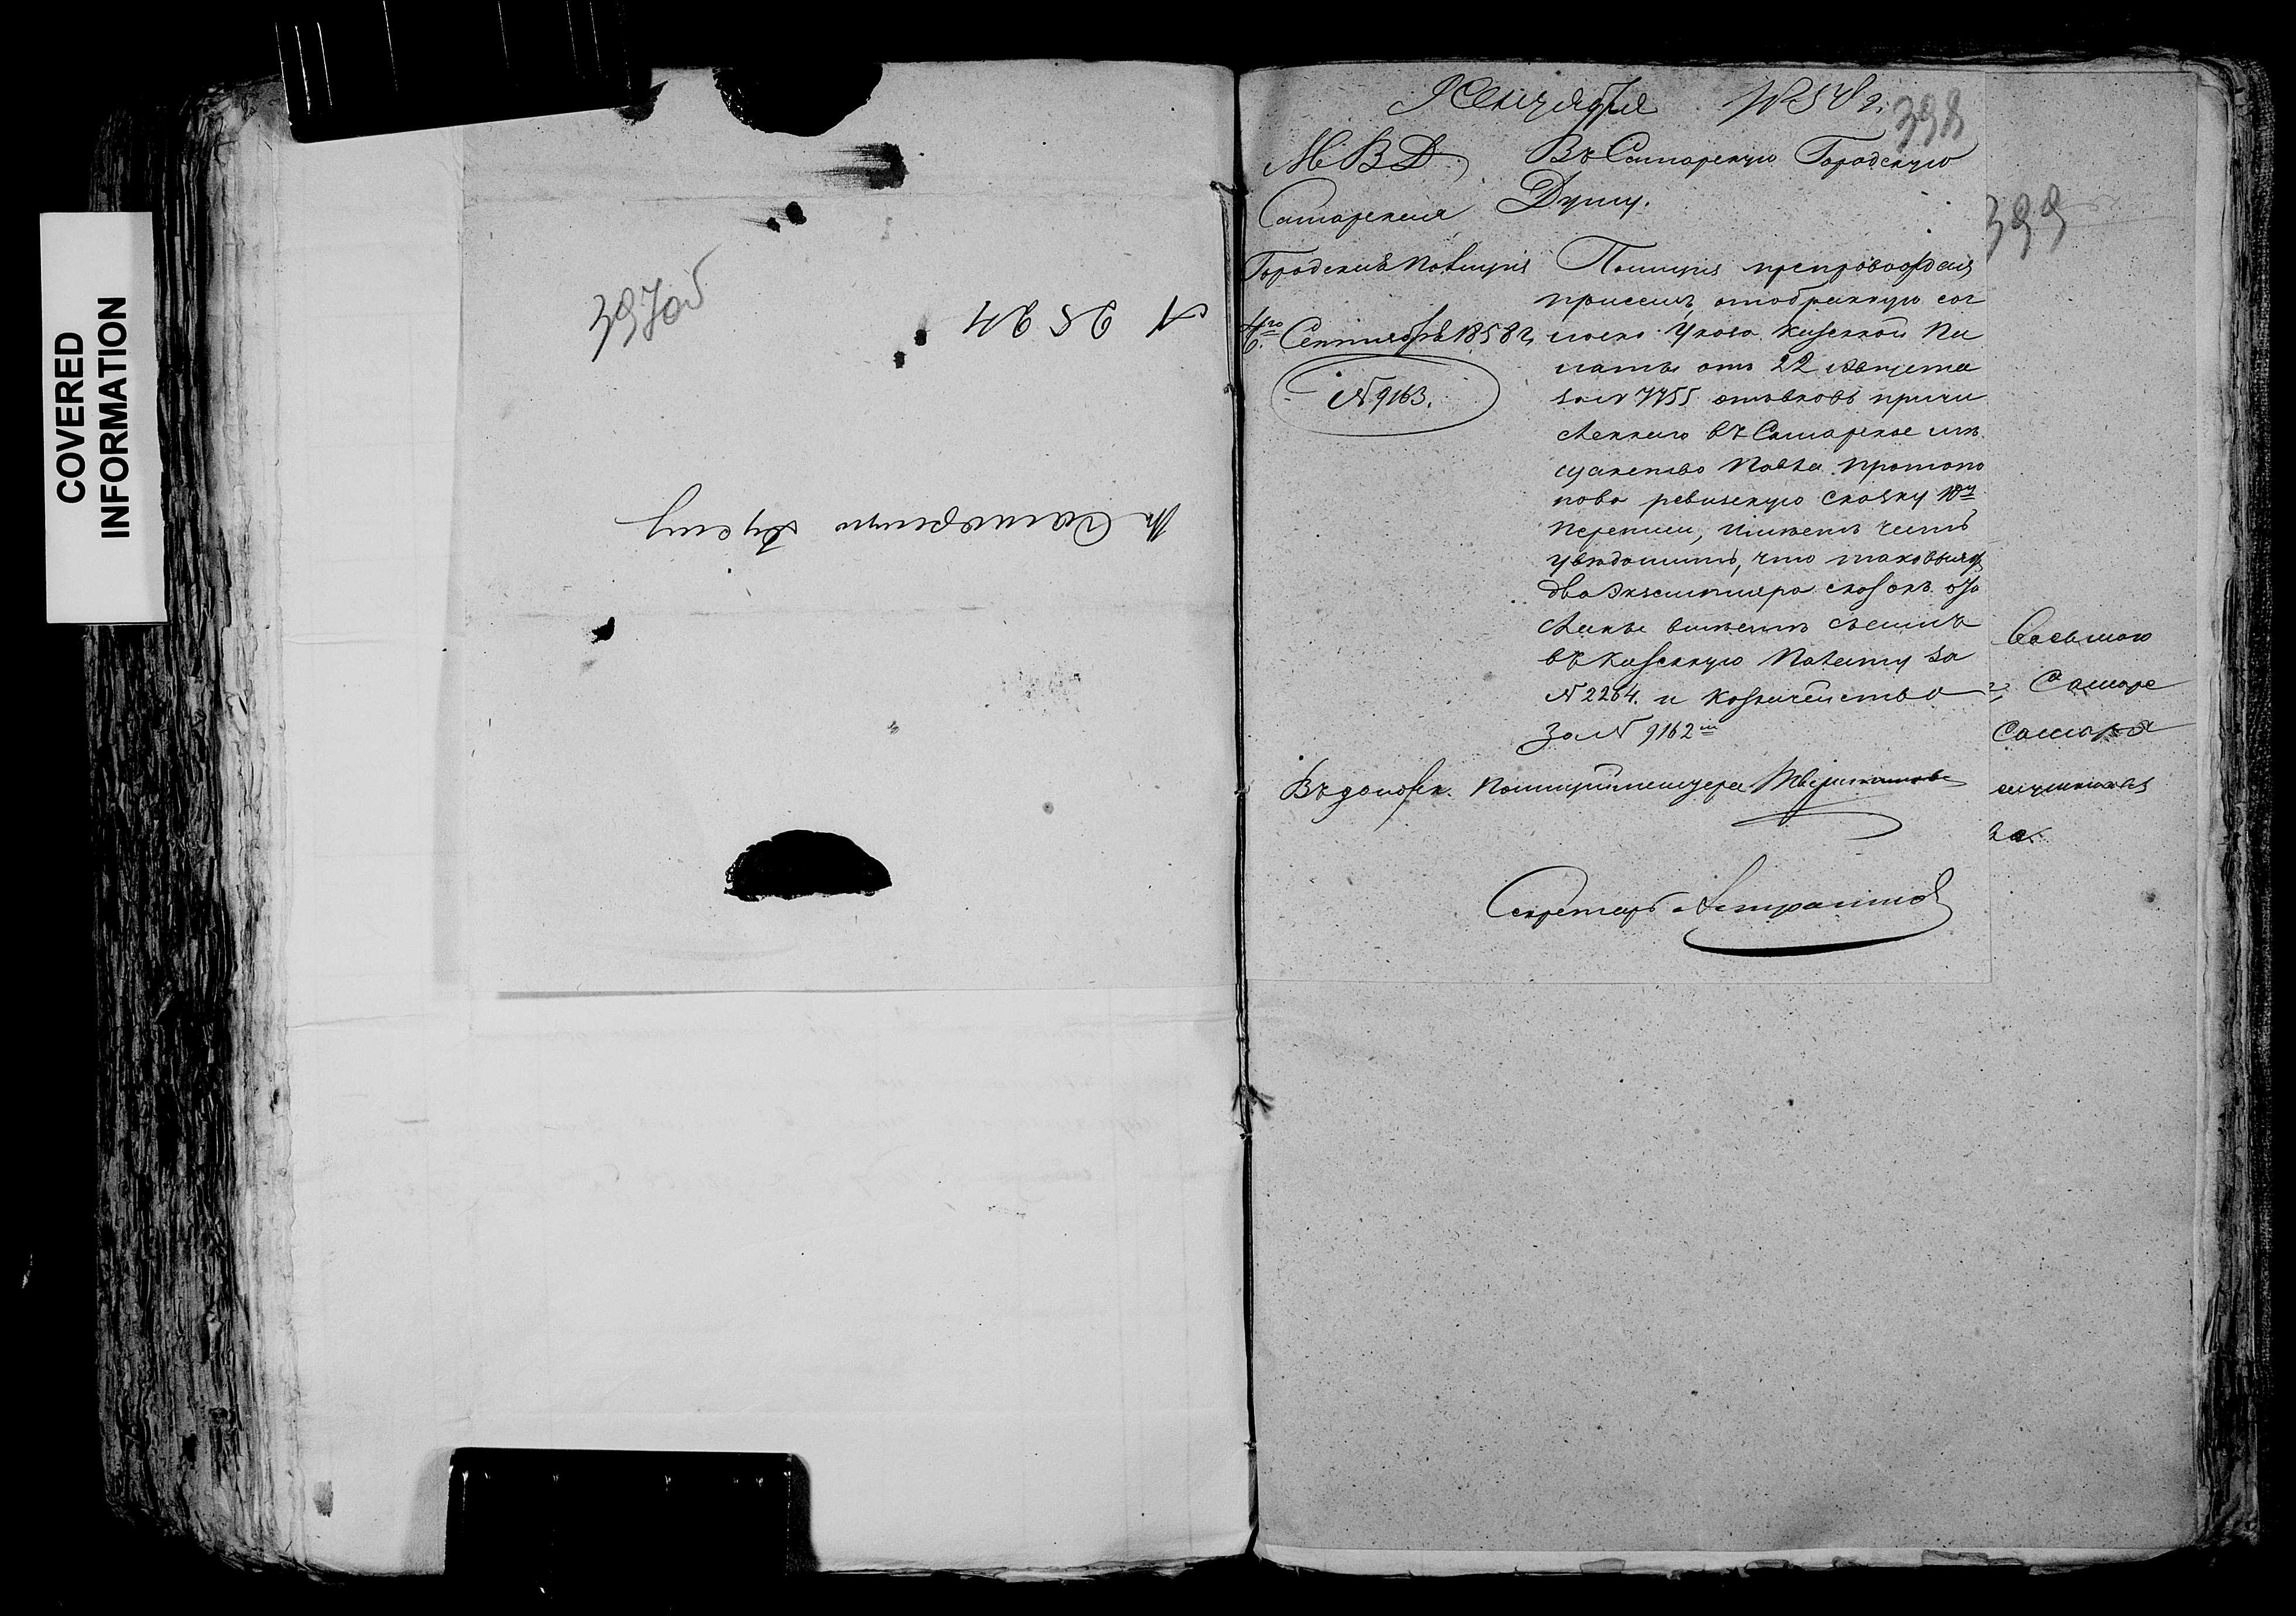 COVERED
INFORMATION
397об
№ 2524
Въ Самарскую Думу
Сентября 1858 г.
398
399
МВД
Самарская
Городская Полиція
Сентября 1858 г.
№ 9163.
Въ Самарскую Городскую
Думу.
Полиція препровождая
при семъ, отобранную сог
ласно Указа Казенной Па
латы отъ 22 Августа
за № 7755 отъ вновь причи
сленнаго въ Самарское мѣ
щанство Павла Протопо
пова ревизскую сказку 10й
переписи, имѣетъ честь
увѣдомить, что таковыя
два экземпляра сказокъ
вмѣстѣ съ симъ
въ Казенную Палату за
№ 2264. и Казначейство
за № 9162
Въ должн. Полиціймейстера
Секретарь
восьмаго
г. Самаре
Самара
за.